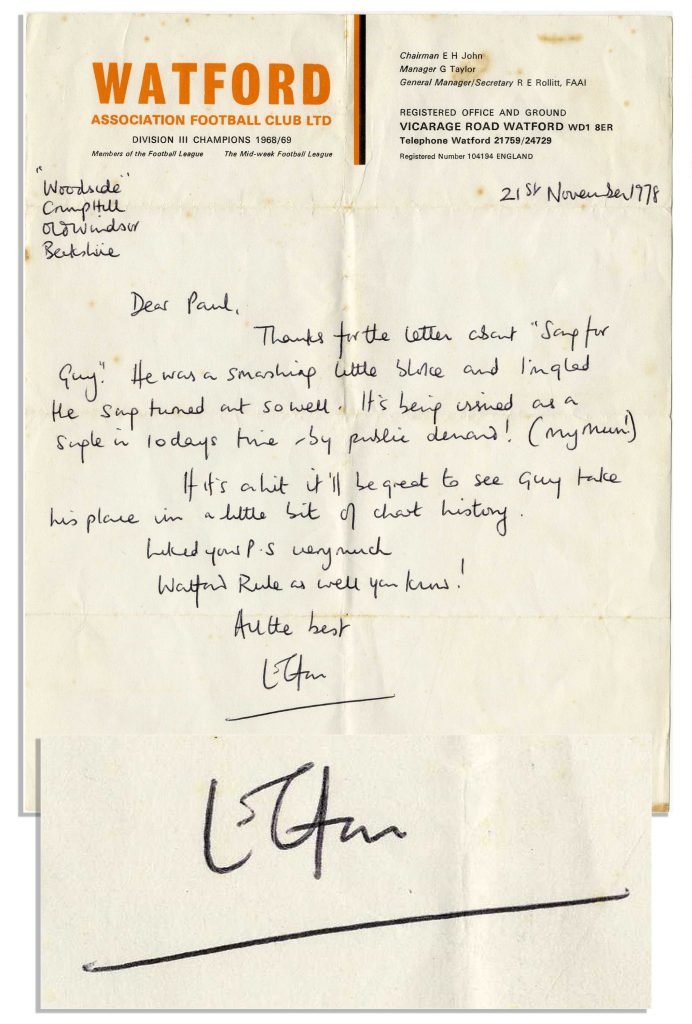 WATFORD
ASSOCIATION FOOTBALL CLUB LTD
DIVISION III CHAMPIONS 1968/69
Members of the Football League The Mid-week Football League
Chairman E H John
Manager G Taylor
General Manager/Secretary R E Rollitt, FAAI
REGISTERED OFFICE AND GROUND
VICARAGE ROAD WATFORD WD1 8ER
Telephone Watford 21759/24729
Registered Number 104194 ENGLAND
"Woodside"
Crimp Hill
Old Windsor
Berkshire
21st November 1978
Dear Paul,
Thanks for the letter about "Song for
Guy". He was a smashing little bloke and I'm glad
the song turned out so well. It's being issued as a
single in 10 days time - by public demand! (My Mum!)
If it's a hit it'll be great to see Guy take
his place in a little bit of chart history.
Liked your P.S very much
Watford Rule as well you know!
All the best
Elton
Elton